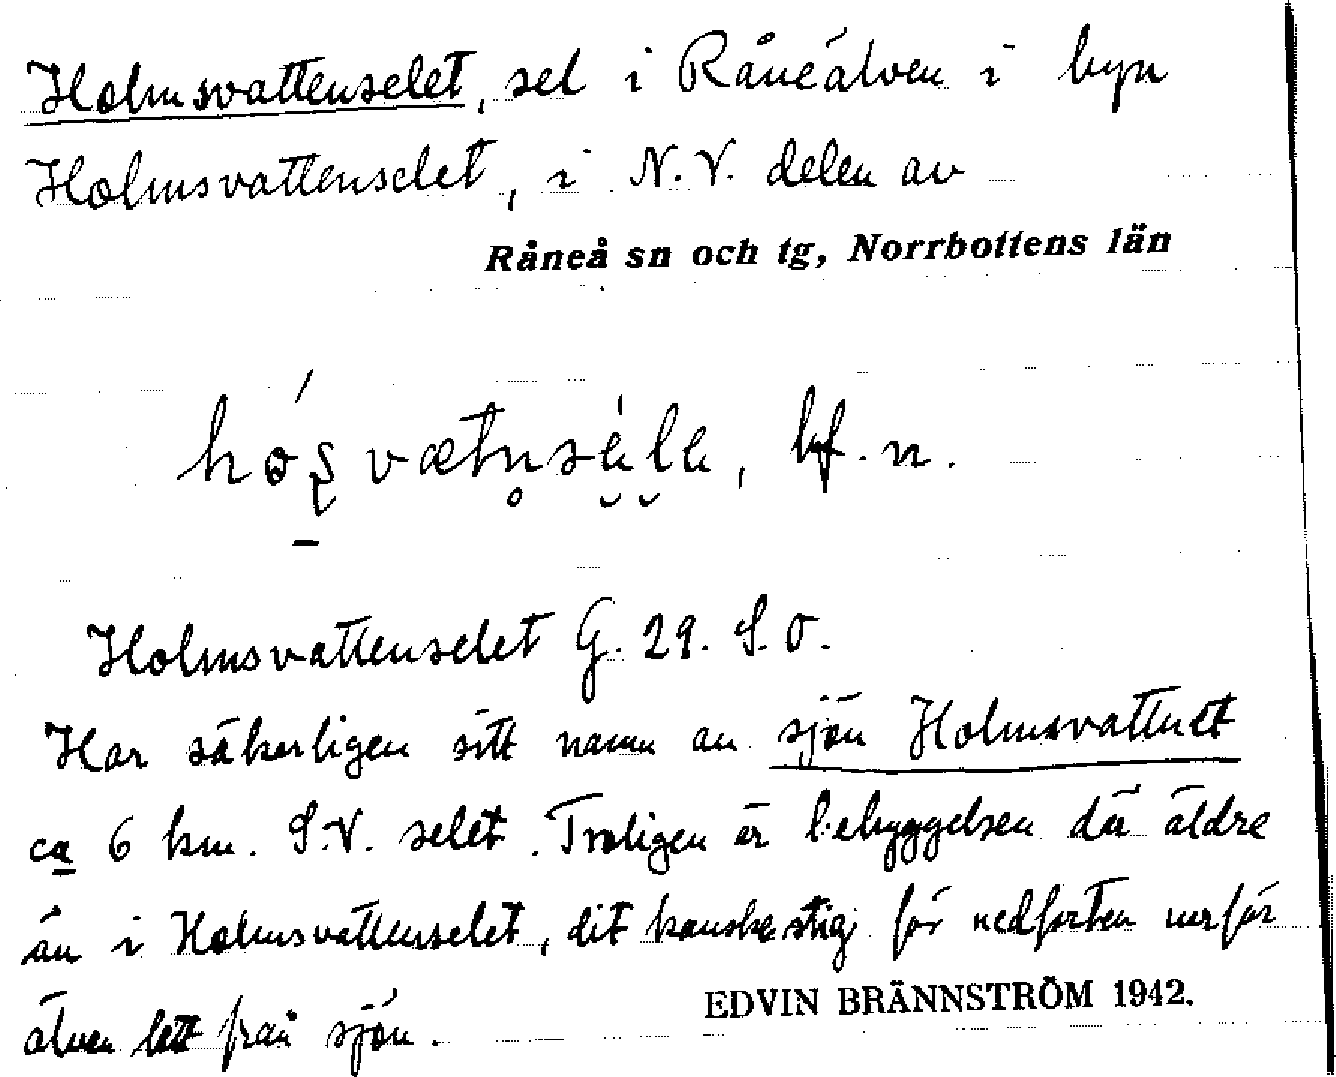 Holmsvattenselet, sel i Råneälven i byn
Holmsvattenselet, i N.V. delen av
Råneå sn och tg, Norrbottens län
bf. n.
Holmsvattenselet G. 29. S.O.
Har säkerligen sitt namn av sjön Holmsvattnet
ca 6 km. S.V. selet. Troligen är bebyggelsen där äldre
än i Holmsvattenselet, dit kanske stig för nedfarten nerför
älven lett från sjön.
EDVIN BRÄNNSTRÖM 1942.